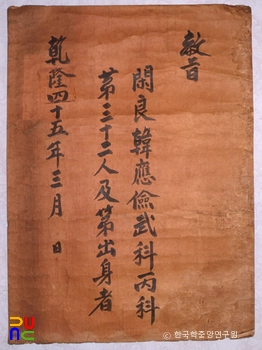 敎旨
閑良韓應儉武科丙科
第三十二人及第出身者
乾隆四十五年三月　日
PUNC
© 한국학중앙연구원